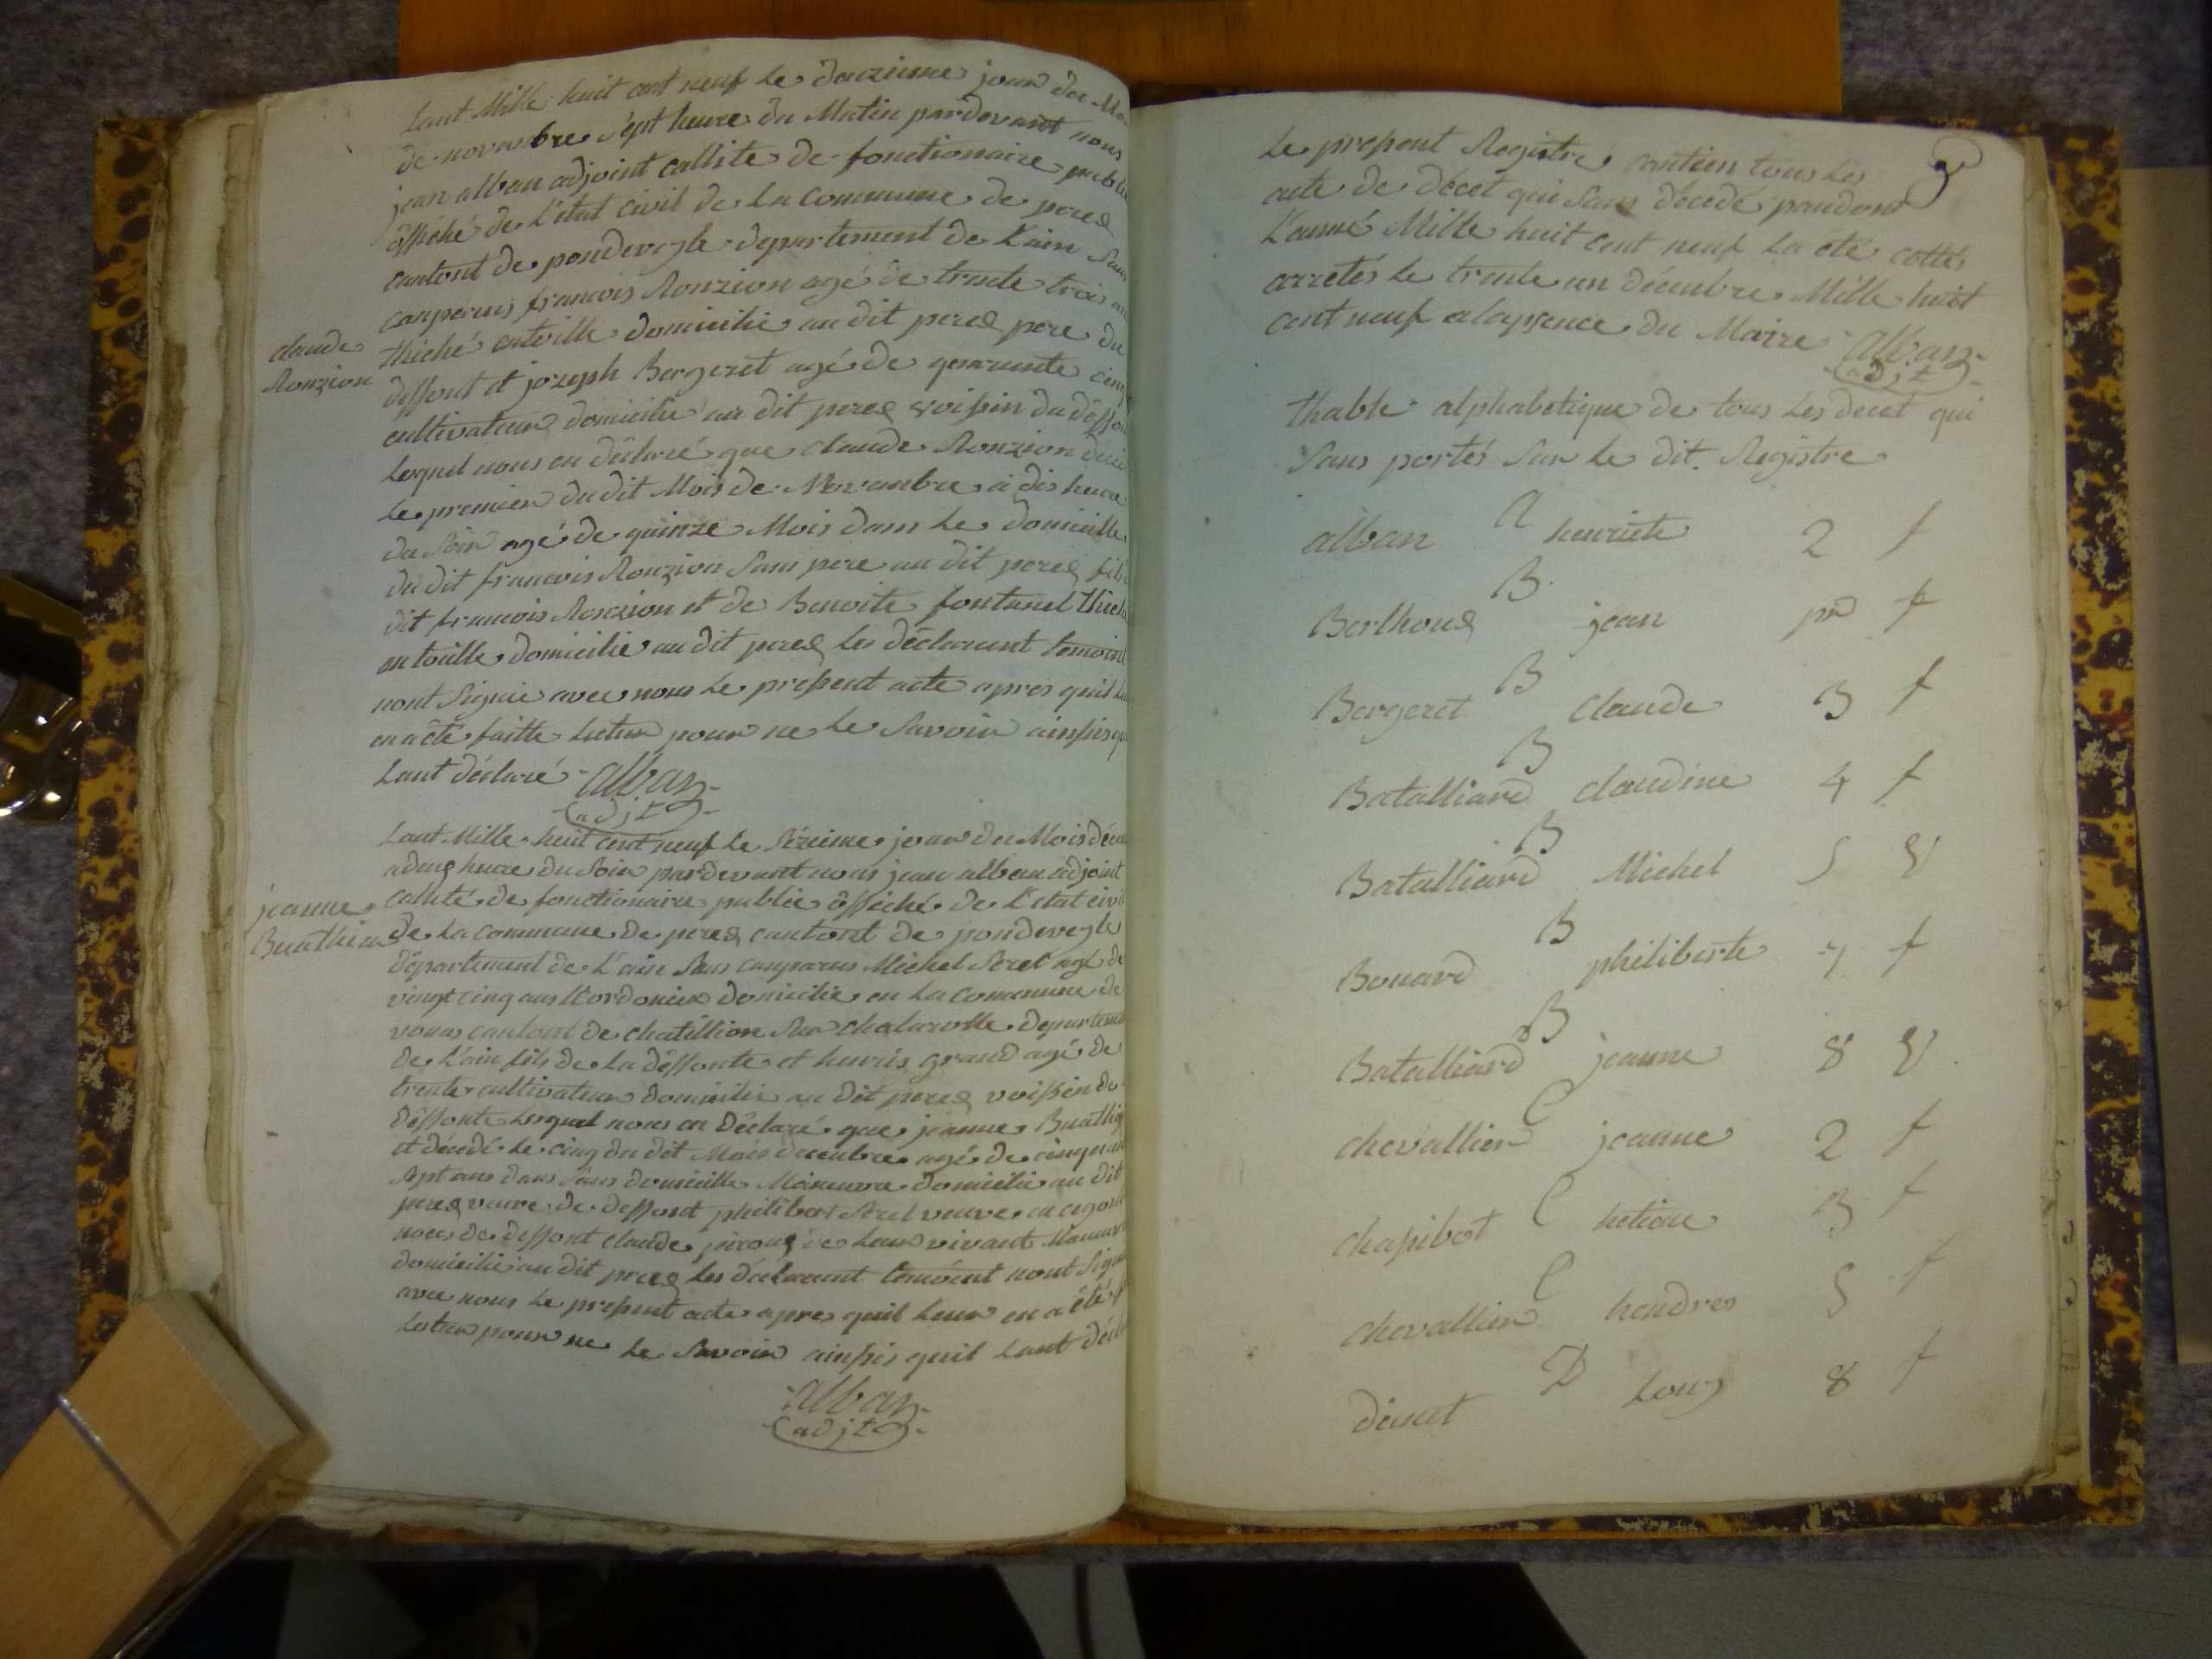 Lant Mille huit cent neuf le douzieme jour du Moi
de novambre sept heure du Matin pardevant nous
jean alban adjoint callite de fonctionaire public
offiché de l'etat civil de la commune de perex
cantont de pondevegle departement de l'ain sans
comparus francois Ronzion agé de trante trois an
thiché entoille domicilie au dit perex pere du
deffont et jozeph Bergeret agé de quarante cinq
cultivateur domicilie au dit perex voisin du deffon
lequel nous on déclaré que claude Ronzion décé
le premier du dit Mois de Novanbre a dis heure
du soir agé de quinze Mois dans le domicille
du dit francois Ronzion sans pere au dit perex fils
dit francois Ronzion et de Benoite fontanel thiché
en toille domicilie au dit perex les déclarant temoins
nont signie avec nous le present acte apres quil l
en a été faitte lecteur pour ne le savoir ainsis qu
lant déclaré alban
adjt
claude
Ronzion
Lant Mille huit cent neuf le sézieme jour du Mois déce
a deux heure du soir pardevant nous jean alban adjoint
callité de fonctionaire public officihé de l'etat civi
de la commune de perex cantont de pondevegle
département de l'ain sans comparus Michel Seret agé de
vingt cinq ans cordonier domicilie en la commune de
vonas cantont de chatillion sur chalaronne departeme
de l'ain fils de la deffonte et henris grand agé de
trente cultivateur domicilie au dit perex voissin de
deffonte lequel nous on déclaré que jeanne Buathie
et décédé le cinq du dit Mois decenbre agé de cinquan
sept ans dans sans domicille Maneuvre domicilie au dit
perex veuve de deffont philibert Seret veuve en cegon
noce de deffont claude peroux de leur vivant Maneuvre
domicilie au dit perex les déclarant temoint nont signé
avec nous le present acte apres quil leur en a été f
lecteur pour ne le savoir ainsis quil lant décla
alban
adjt
jeanne
Buathier
Le present Registre contien tous les
acte de décet qui sans décédé pandent
L'anné Mille huit cent neuf la été cottés
arretés le trente un décenbre Mille huit
cent neuf a lapsence du Maire alban
adjt
thable alphabetique de tous les decet qui
sans portés sur le dit Registre
A
alban henriete 2 f
B
Berthoux jean pr f
B
Bergeret claude 3 f
B
Batalliard claudine 4 f
B
Batalliard Michel 5 v
B
Bouard philiberte 7 f
B
Batalliard jeanne 8 v
C
chevallier jeanne 2 f
C
chapibot hetiene 3 f
C
chevallier hendres 5 f
D
decret Louis 8 f